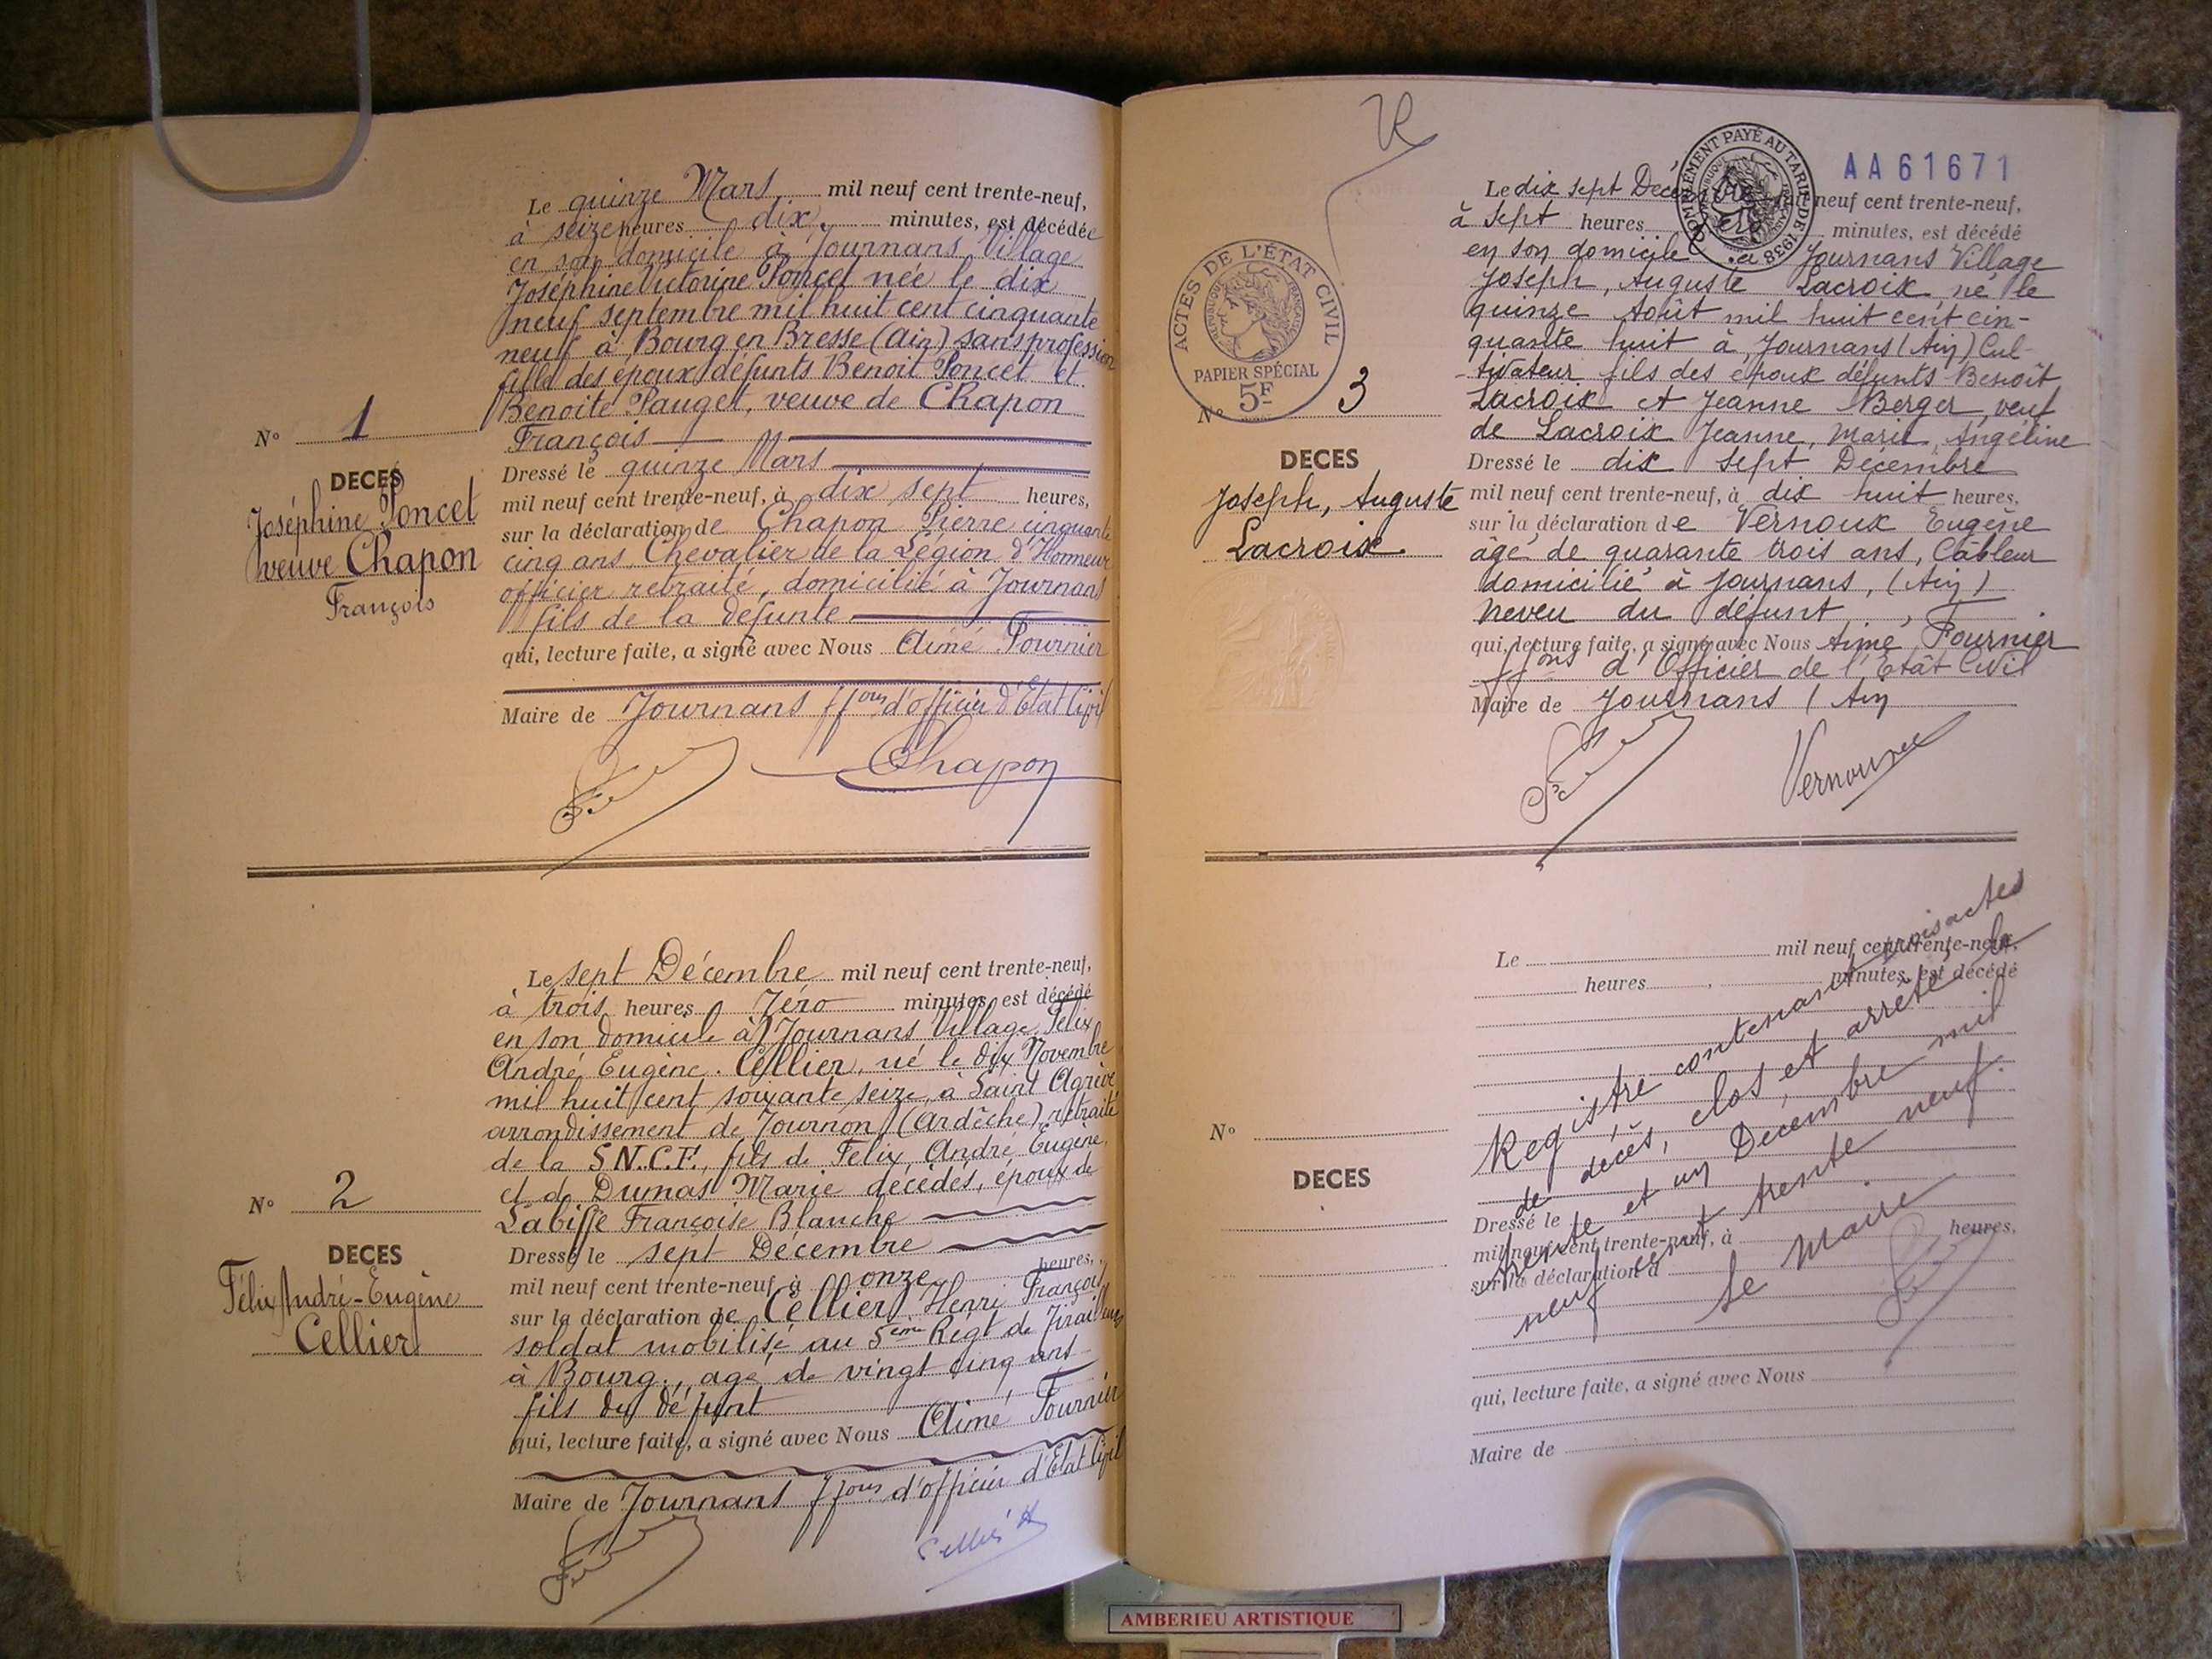 Le quinze Mars mil neuf cent trente-neuf,
à seize heures dix minutes, est décédée
en son domicile à Journans Village
Joséphine Victorine Poncet née le dix
neuf septembre mil huit cent cinquante
neuf à Bourg en Bresse (Ain) sans profession
fille des époux défunts Benoit Poncet et
Benoite Pauget, veuve de Chapon
François
N° 1
DECES
Joséphine Poncet
veuve Chapon
François
Dressé le quinze Mars
mil neuf cent trente-neuf, à dix sept heures,
sur la déclaration de Chapon Pierre cinquante
cinq ans Chevalier de la Légion d'Honneur
officier retraité, domicilié à Journans
fils de la défunte
qui, lecture faite, a signé avec Nous Aimé Fournier
Maire de Journans ffons d'officier d'Etat Civil
Chapon
Le sept Décembre mil neuf cent trente-neuf,
à trois heures Zéro minutes, est décédé
en son domicile à Journans Village, Félix
André Eugène Cellier, né le dix Novembre
mil huit cent soixante seize, à Saint Agrève
arrondissement de Tournon (Ardêche) retraité
de la S.N.C.F., fils de Félix, André Eugène,
et de Dumas Marie décédés, époux de
Labiffe Françoise Blanche
N° 2
DECES
Félix André-Eugène
Cellier
Dressé le sept Décembre
mil neuf cent trente-neuf, à onze heures,
sur la déclaration de Cellier Henri François
soldat mobilisé au 5ème Régt de Tirailleurs
à Bourg., agé de vingt cinq ans
fils du défunt
qui, lecture faite, a signé avec Nous Aimé Fournier
Maire de Journans ffons d'officier d'Etat Civil
AMBERIEU ARTISTIQUE
AA61671
COMPLEMENT PAYÉ AU TARIF DE 1938
ACTES DE L'ÉTAT CIVIL
RÉPUBLIQUE FRANÇAISE
PAPIER SPÉCIAL
5F
Le dix sept Décembre mil neuf cent trente-neuf,
à Sept heures zéro minutes, est décédé
en son domicile Journans Village
Joseph, Auguste Lacroix, né le
quinze Août mil huit cent cin-
quante huit à Journans (Ain) Cul-
-tivateur fils des époux défunts Benoît
Lacroix et Jeanne Berger, veuf
de Lacroix Jeanne, Marie, Angéline
N° 3
DECES
Joseph, Auguste
Lacroix
Dressé le dix sept Décembre
mil neuf cent trente-neuf, à dix huit heures,
sur la déclaration de Vernoux Eugène
âgé de quarante trois ans, Câbleur
domicilié à Journans, (Ain)
neveu du défunt
qui, lecture faite, a signé avec Nous Aimé Fournier
ffons d'Officier de l'Etât Civil
Maire de Journans (Ain
Vernoux
Le mil neuf cent trente-neuf,
heures minutes, est décédé
N°
DECES
Dressé le
mil neuf cent trente-neuf, à heures,
sur la déclaration d
qui, lecture faite, a signé avec Nous
Maire de
Registre contenant trois actes
de décès, clos et arrêté le
trente et un Décembre mil
neuf cent trente neuf.
Le Maire